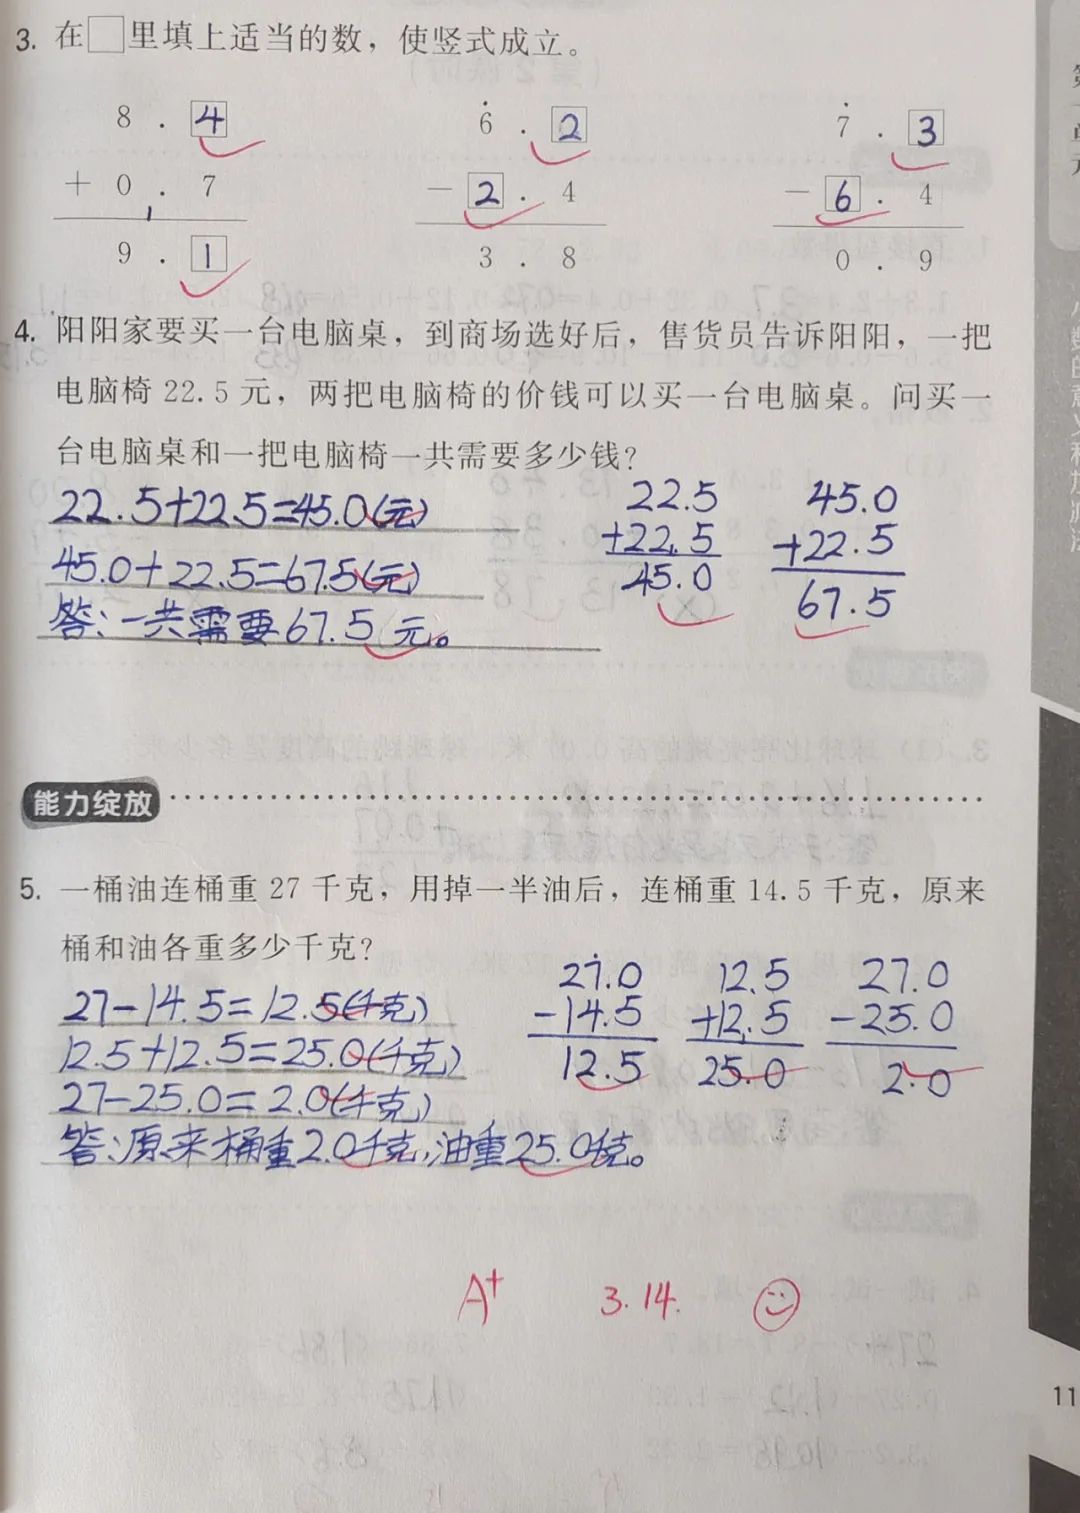 3. 在□里填上适当的数，使竖式成立。
8.4 6.2 7.3
+0.7 -2.4 -6.4
9.1 3.8 0.9
4. 阳阳家要买一台电脑桌，到商场选好后，售货员告诉阳阳，一把
电脑椅 22.5 元，两把电脑椅的价钱可以买一台电脑桌。问买一
台电脑桌和一把电脑椅一共需要多少钱？
22.5+22.5=45.0(元) 22.5 45.0
45.0+22.5=67.5(元) +22.5 +22.5
答：一共需要67.5元。 45.0 67.5
能力绽放
5. 一桶油连桶重 27 千克，用掉一半油后，连桶重 14.5 千克，原来
桶和油各重多少千克？
27-14.5=12.5(千克) 27.0 12.5 27.0
12.5+12.5=25.0(千克) -14.5 +12.5 -25.0
27-25.0=2.0(千克) 12.5 25.0 2.0
答：原来桶重2.0千克，油重25.0千克。
A+ 3.14.
11
小数的意义和加减法